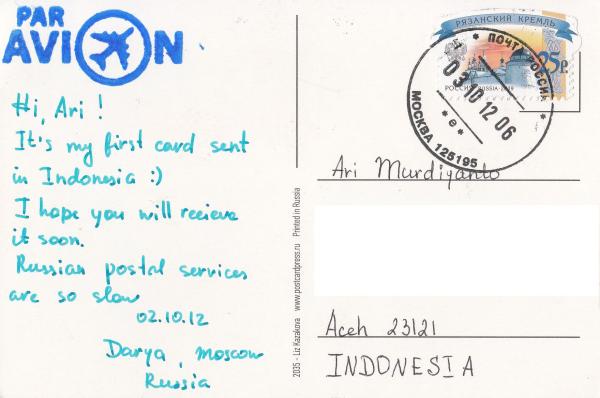 PAR
AVION
Hi, Ari!
It's my first card sent
in Indonesia :)
I hope you will recieve
it soon.
Russian postal services
are so slow
02.10.12
Darya, Moscow
Russia
2035 - Liz Kazakova www.postcardpress.ru Printed in Russia
РЯЗАНСКИЙ КРЕМЛЬ
25р
РОССИЯ RUSSIA·2009
ПОЧТА РОССИИ
03 10 12 06
*е*
МОСКВА 125195
Ari Murdiyanto
Aceh 23121
INDONESIA